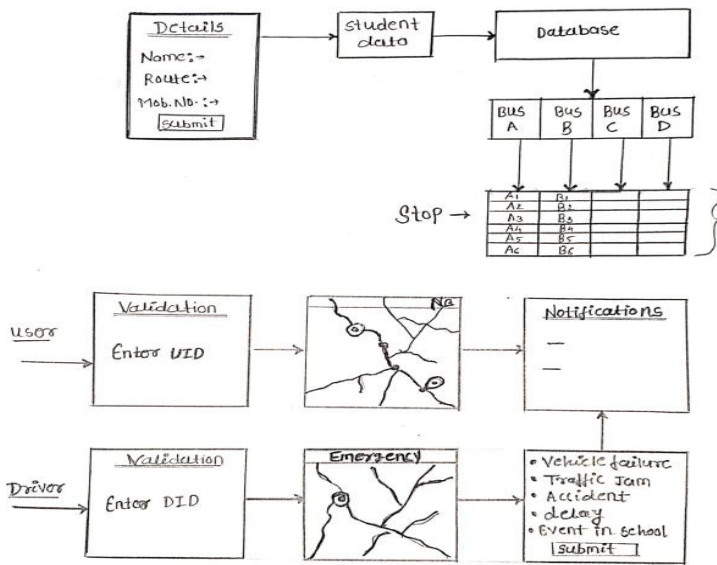 Details
Name:→
Route:→
Mob.No.:→
submit
student
data
Database
BUS
A
BUS
B
BUS
C
BUS
D
Stop →
A1 B1
A2 B2
A3 B3
A4 B4
A5 B5
A6 B6
User
Validation
Enter UID
Notifications
Driver
Validation
Enter DID
Emergency
• Vehicle failure
• Traffic Jam
• Accident
• delay
• Event in school
submit